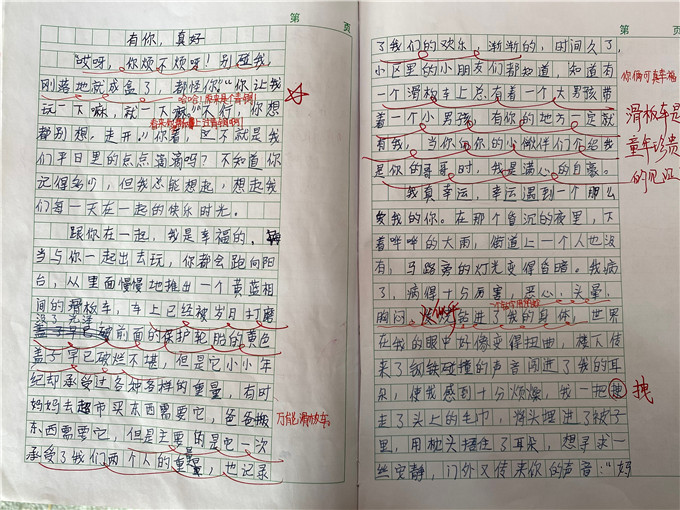 第 页
有你,真好
“哎呀,你烦不烦呀!别碰我,
刚落地就成盒了,都怪你”“你让我
哈哈!原来是个喜剧
玩一下嘛,就一下嘛”“不行,你想
都别想。走开。”你看,这不就是我
们平日里的点点滴滴吗?不知道你
记得多少,但我总能想起,想起我
们每一天在一起的快乐时光。
跟你在一起,我是幸福的。每
当与你一起出去玩,你都会跑向阳
台,从里面慢慢地推出一个黄蓝相
间的滑板车,车上已经被岁月打磨
前面的保护轮胎的黄色
盖子早已破烂不堪,但是它小小年
纪却承受过各种各样的重量,有时
妈妈去超市买东西需要它,爸爸搬
万能滑板车。
东西需要它,但是主要的是它一次
承受了我们两个人的重量,也记录
第 页
了我们的欢乐,渐渐的,时间久了,
小区里的小朋友们都知道,知道有
你俩可真幸福
一个滑板车上总有着一个大男孩带
着一个小男孩,有你的地方一定就
滑板车是
有我,当你的小伙伴们介绍我
童年珍贵
是你的哥哥时,我是满心的自豪。
的见证
我真幸运,幸运遇到一个那么
爱我的你。在那个昏沉的夜里,下
着哗哗的大雨,街道上一个人也没
有,马路旁的灯光变得昏暗。我病
了,病得十分厉害,恶心,头晕,
胸闷,似乎进了我的身体,世界
在我的眼中好像变得扭曲,楼下传
来了钢铁碰撞的声音闯进了我的耳
朵,使我感到十分烦燥,我一把
拽
走了头上的毛巾,将头埋进了被子
里,用枕头捂住了耳朵,想寻求一
丝安静,门外又传来你的声音:“妈